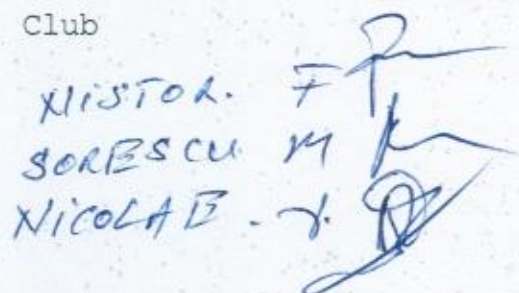 Club
NISTOR. F
SORESCU M
NICOLAE.